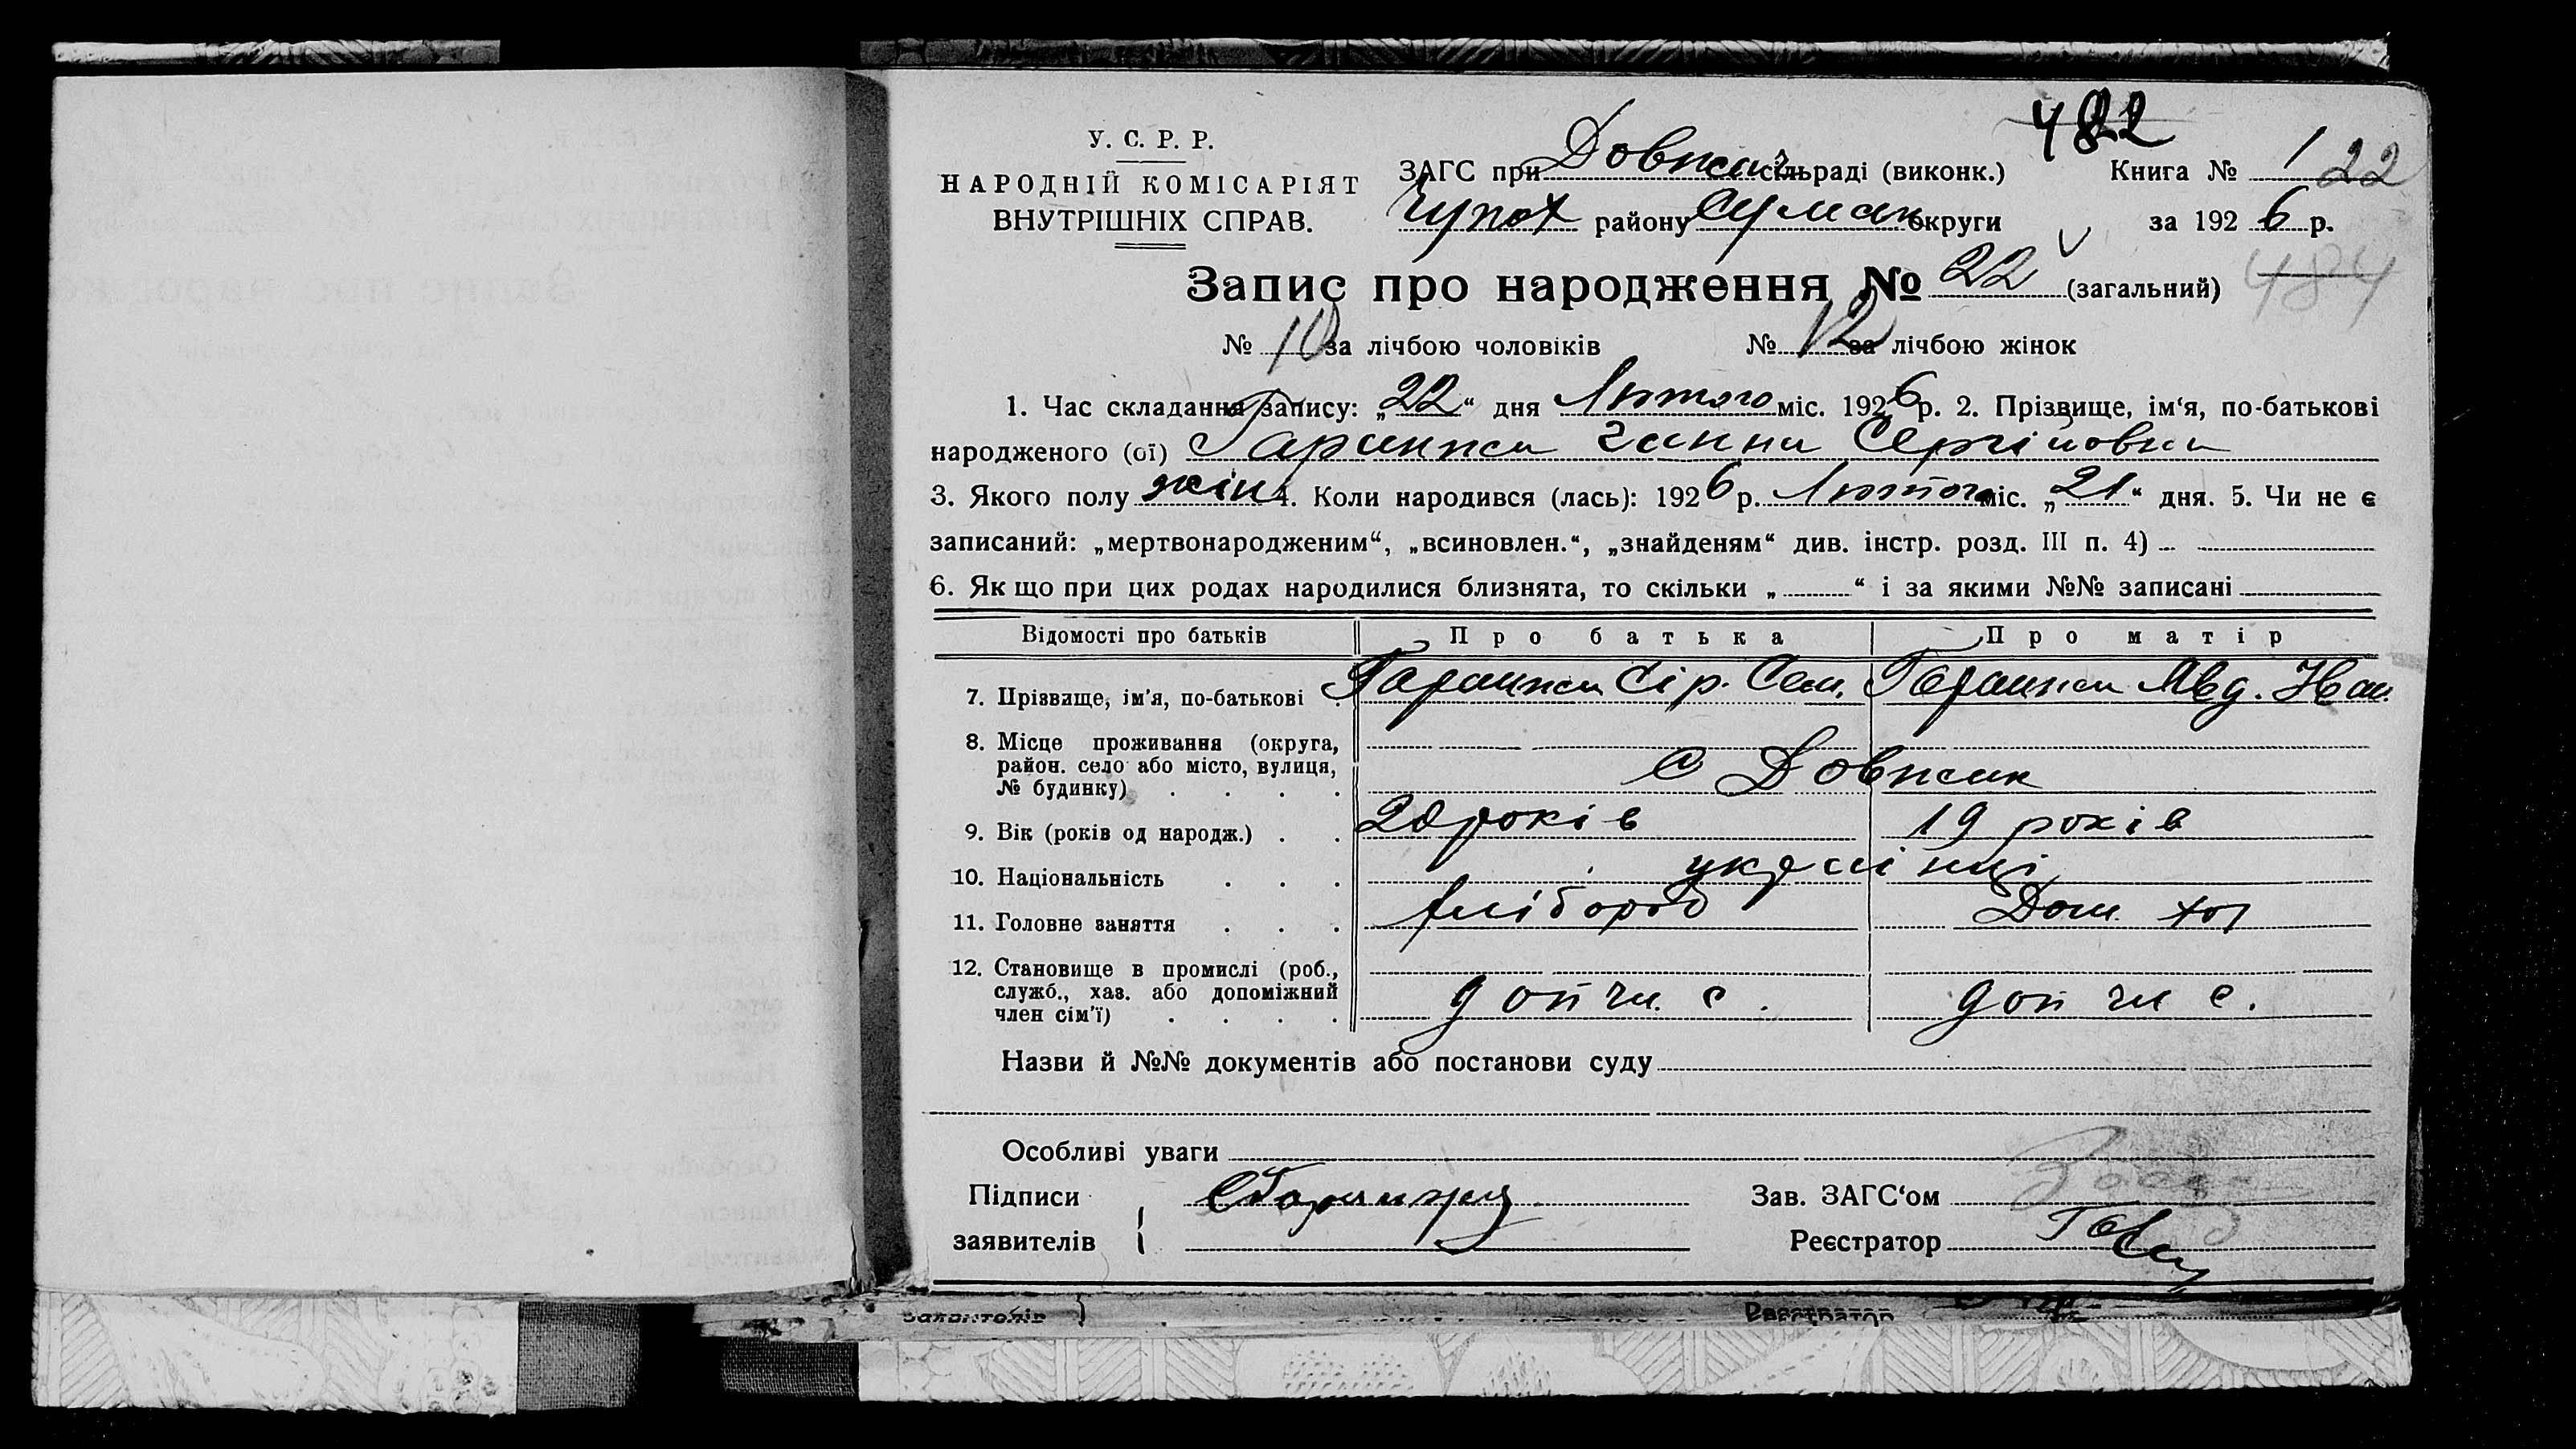 482
У. С. Р. Р.
НАРОДНІЙ КОМІСАРІЯТ
ВНУТРІШНІХ СПРАВ.
ЗАГС при Довжик сільраді (виконк.) Книга № 1 22
Чупах району Сумськ округи за 1926 р.
Запис про народження № 22 (загальний) 484
№ 10 за лічбою чоловіків № 12 за лічбою жінок
1. Час складання запису: „22“ дня Лютого міс. 1926 р. 2. Прізвище, ім‘я, по-батькові
народженого (ої) Гаранжа Ганна Сергійовна
3. Якого полу жін 4. Коли народився (лась): 1926 р. Лютого міс. „21“ дня. 5. Чи не є
записаний: „мертвонародженим“, „всиновлен.“, „знайденям“ див. інстр. розд. III п. 4)
6. Як що при цих родах народилися близнята, то скільки „ “ і за якими №№ записані
Відомості про батьків Про батька Про матір
7. Прізвище, ім'я, по-батькові Гаранжа Сір. Сем. Гаранжа Явд. Иван.
8. Місце проживання (округа,
район. село або місто, вулиця,
№ будинку) с Довжик
9. Вік (років од народж.) 20 років 19 років
10. Національність українці
11. Головне заняття хлібороб Дом. хоз
12. Становище в промислі (роб.,
служб., хаз. або допоміжний
член сім'ї) доп чл. с. доп чл с.
Назви й №№ документів або постанови суду
Особливі уваги
Підписи Зав. ЗАГС‘ом
заявителів Реєстратор
заявителів Реєстратор